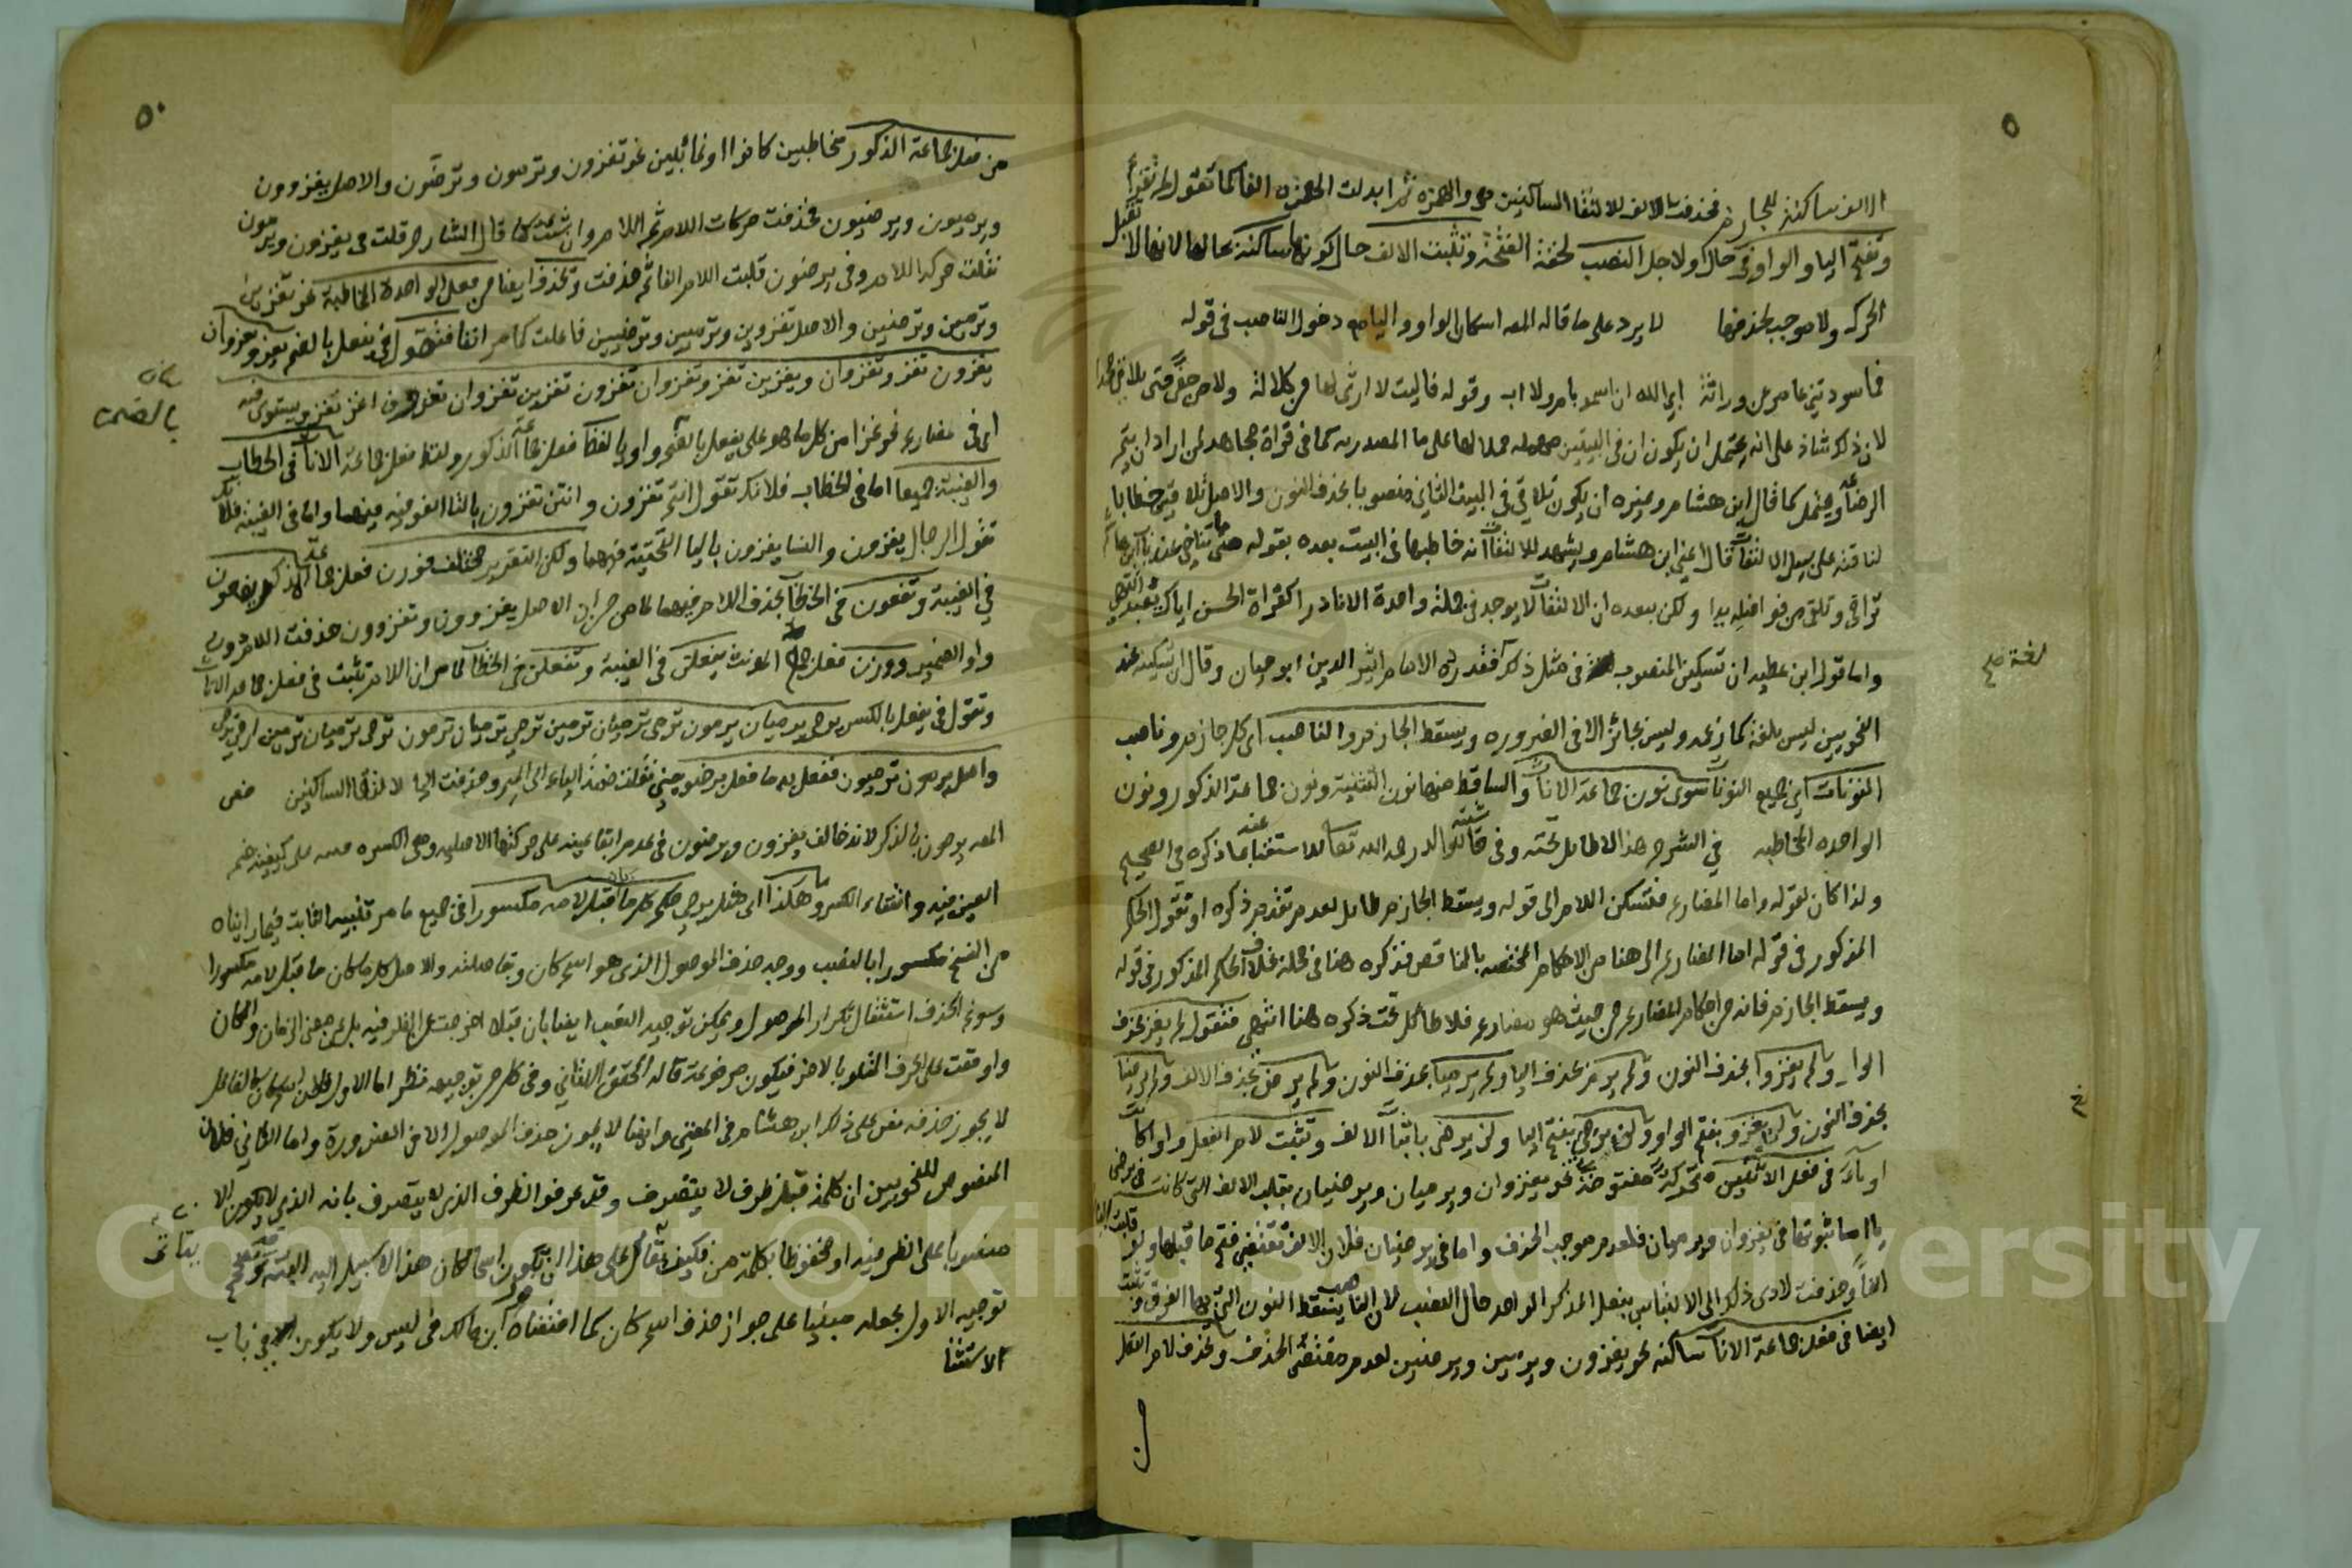 الالف ساكنة للجازم فحذفت الالف لالتقا الساكنين هى والهمزة ثم ابدلت الهمزة الفا كما تقول لم تقرأ
وتفتح اليا والواو فى حال ولاجل النصب لخفة الفتحة وتثبت الالف حال كونها ساكنة بحالها لانها لا تقبل
الحركة ولا موجب لحذفها لا يرد على ما قاله المصـ اسكان الواو واليا مع دخول الناصب فى قوله
فما سودتنى عامر عن وراثة ابى الله ان اسمو بام ولا اب وقوله فاليت لا ارثى لها من كلالة ولا من حفى حتى تلاقى محمدا
لان ذلك شاذ على انه يحتمل ان يكون ان فى البيتين مهملة حملا لها على ما المصدريه كما فى قراة مجاهد لمن اراد ان يتم
الرضاعة ويحتمل كما قال ابن هشام وغيره ان يكون تلاقى فى البيت الثانى منصوبا بحذف النون والاصل تلاقين خطابا
لناقته على سبيل الالتفات قال اعنى ابن هشام ويشهد للالتفات انه خاطبها فى البيت بعده بقوله متى ما تناخى عند باب ابن هاشم
تراحى وتلقى من فواضله يدا ولكن يبعده ان الالتفات لا يوجد فى جملة واحدة الا نادرا كقراة الحسن اياك يعبد انتهى
واما قول ابن عطيه ان تسكين المنصوب فى مثل ذلك فقد رده الامام اثير الدين ابو حيان وقال ان تسكينه عند
لغة صح
النحويين ليس بلغة كما زعم وليس بجائز الا فى الضروره ويسقط الجازم والناصب اى كل جازم وناصب
النونات اى جميع النونات سوى نون جماعة الاناث والساقط منها نون التثنية ونون جماعة الذكور ونون
الواحده المخاطبه فى الشرح هذا لا طائل تحته وفى
ولذا كان لقوله واما المضارع فتسكن اللام الى قوله ويسقط الجازم طائل لعدم تقدم ذكره او تقول الحكم
المذكور فى قوله اما المضارع الى هنا من الاحكام المختصه بالناقص فذكره هنا فى محله بخلاف الحكم المذكور فى قوله
ويسقط الجازم فانه من احكام المضارع من حيث هو مضارع فلا طائل تحت ذكره هنا انتهى فتقول لم يغز بحذف
الواو ولم يغزوا بحذف النون ولم يرم بحذف اليا ولم يرميا بحذف النون ولم يرض بحذف الالف ولم يرضيا
بحذف النون ولن يغزو بفتح الواو ولن يرمى بفتح اليا ولن يرضى باثبات الالف وتثبت لام الفعل واوا كانت
او ياء فى فعل الاثنين متحركة مفتوحة نحو يغزوان ويرميان ويرضيان بقلب الالف التى كانت فى يرضى
يا اما ثبوتها فى يغزوان ويرميان فلعدم موجب الحذف واما فى يرضيان فلان الالف تقتضى فتح ما قبلها ولو قلبت اليا
الفا وحذفت لادى ذلك الى الالتباس بفعل المذكر الواحد حال النصب لان الناصب يسقط النون التى بها الفرق وتثبت
ايضا فى فعل جماعة الاناث ساكنة نحو يغزون ويرمين ويرضين لعدم مقتضى الحذف وتحذف لام الفعل
من
٥٠
من فعل جماعة الذكور مخاطبين كانوا او غائبين نحو تغزون وترمون وترضون والاصل يغزوون
ويرميون ويرضيون فحذفت حركات اللام ثم اللام وان شئت كما قال الشارح قلت فى يغزون ويرمون
نقلت حركة اللام وفى يرضون قلبت اللام الفا ثم حذفت وتحذف ايضا من فعل الواحدة المخاطبة نحو تغزين
وترمين وترضين والاصل تغزوين وترميين وترضيين فاعلت كما مر انفا فتقول فى يفعل بالضم يغزو يغزوان
يغزون تغزو تغزوان ويغزون تغزو تغزوان تغزون تغزين تغزوان تغزون اغزو نغزو ويستوى فيه
بيان
بالضمة
اى فى مضارع نحو غزا من كل ما هو على يفعل بالضم واويا لفظ فعل جماعة الذكور ولفظ فعل جماعة الاناث فى الخطاب
والغيبة جميعا اما فى الخطاب فلانك تقول انتم تغزون وانتن تغزون بالتا الفوقيه فيهما واما فى الغيبة فلانك
تقول الرجال يغزون والنسا يغزون باليا التحتية فيهما ولكن التقدير مختلف فوزن فعل جماعة الذكور يفعون
فى الغيبة وتفعون فى الخطاب بحذف اللام فيهما لما مر من ان الاصل يغزوون وتغزوون حذفت اللام دون
واو الضمير ووزن فعل جماعة المونث يفعلن فى الغيبة وتفعلن فى الخطاب لما مر ان اللام تثبت فى فعل جماعة الاناث
وتقول فى يفعل بالكسر يرمى يرميان يرمون ترمى ترميان يرمين ترمى ترميان ترمون ترمين ترميان ترمين ارمى نرمى
واصل يرمون يرميون ففعل به ما فعل برضيوا يعنى نقلت ضمة الياء الى الميم وحذفت اليا لالتقا الساكنين خص
المصـ يرمون بالذكر لانه خالف يغزون ويرضون فى عدم ابقا عينه على حركتها الاصليه وهى الكسره على كيفية ضم
العين فيه وانتفاء الكسر وهكذا اى مثل يرمى حكم كل ما قبل لامه مكسورا فى جميع ما مر تنبيه الثابت فيما رايناه
من النسخ مكسورا بالنصب ووجه حذف الموصول الذى هو اسم كان وبقا صلته والاصل كل ما كان ما قبل لامه مكسورا
وسوغ الحذف استثقال تكرار الموصول ويمكن توجيه النصب ايضا بان قبلا اخرجت عن الظرفيه بل عن معنى الزمان والمكان
واوقعت على الحرف المتلو بالاخر فيكون مرفوعة قاله المحقق اللقانى وفى كل من توجيهيه نظر اما الاول فلان اسم كان كالفاعل
لا يجوز حذفه نص على ذلك ابن هشام فى المغنى وايضا لا يجوز حذف الموصول الا فى الضرورة واما الثانى فلان
المنصوص للنحويين ان كلمة قبل ظرف لا يتصرف وقد عرفوا الظرف الذى لا يتصرف بانه الذى لا يكون الا
منصوبا على الظرفيه او مخفوضا بكلمة من فكيف يقال على هذا ان تكون اسما لكان هذا لا سبيل اليه البته
توجيه الاول بجعله مبنيا على جواز حذف اسم كان كما اقتضاه ابن مالك فى ليس ولا يكون فى باب
الاستثنا